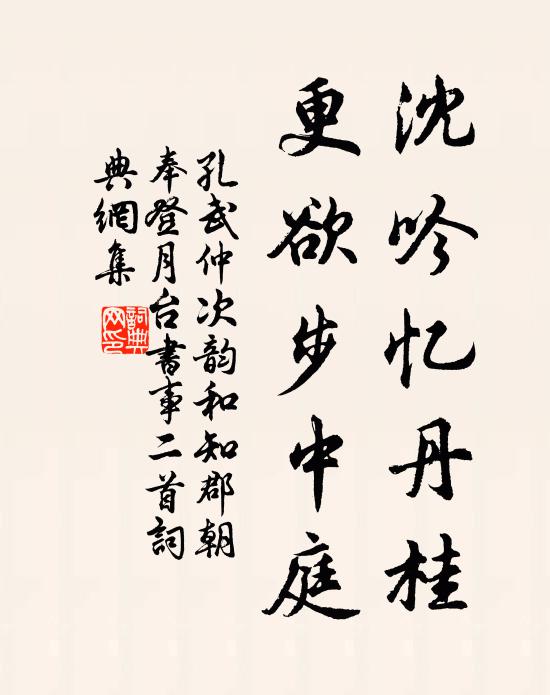 沈吟忆丹桂
更欲步中庭
孔武仲次韵和知郡朝
奉登月台书事二首词
典网集
词典网印